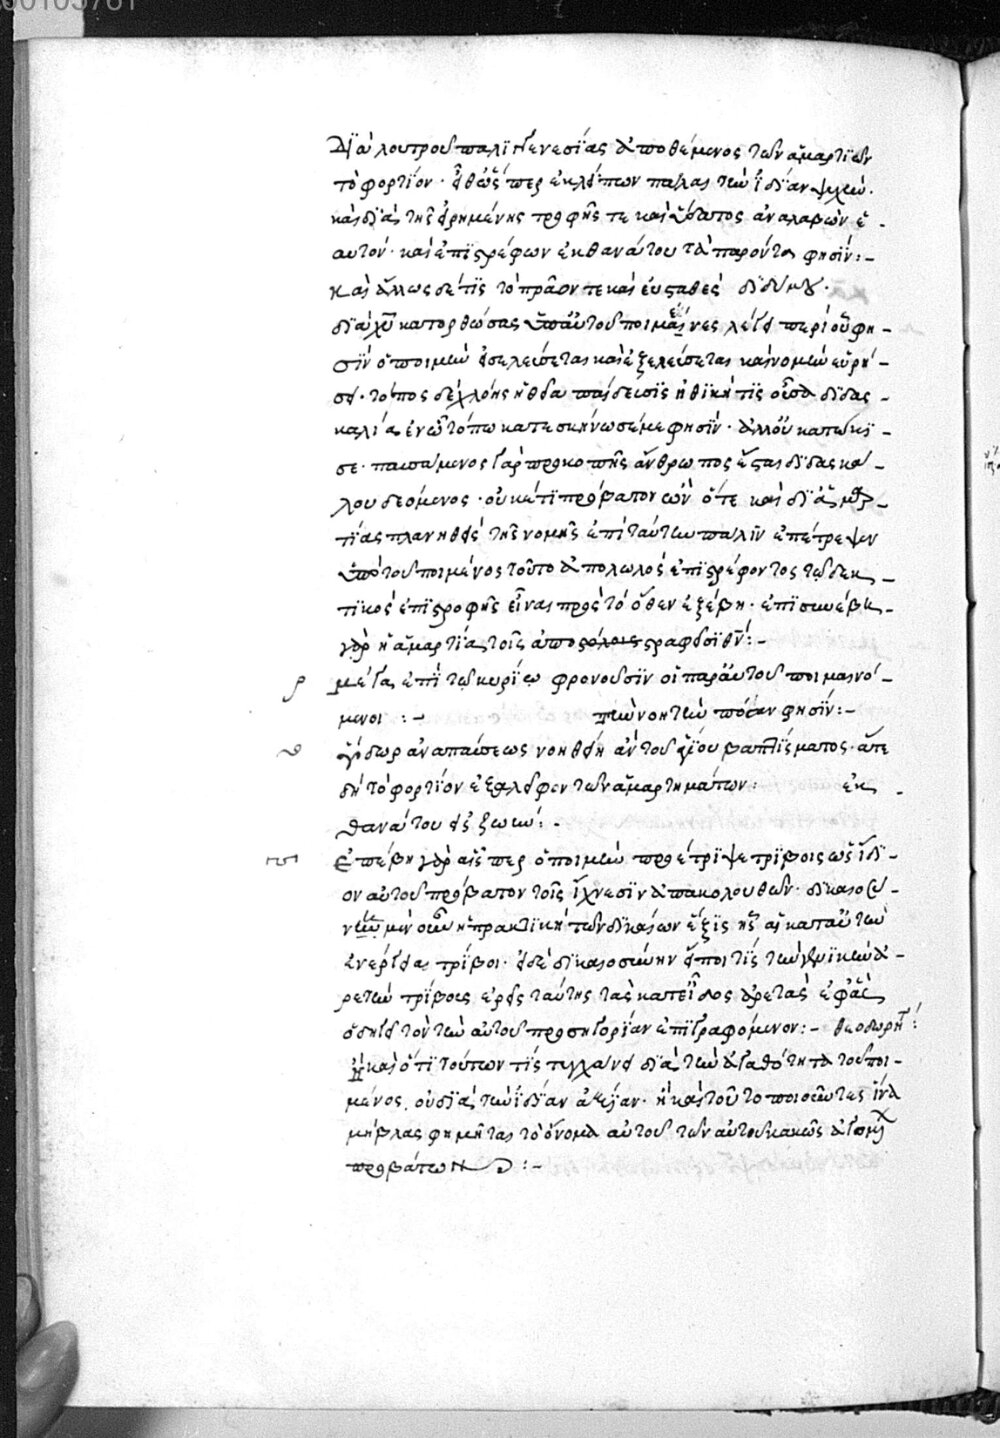 διὰ λουτροῦ παλιγγενεσίας ἀποθέμενος τῶν ἁμαρτιῶν
τὸ φορτίον· ἢ ὥσπερ ἐκλείπων πάλαι τὴν ἰδίαν ψυχὴν·
καὶ διὰ τῆς εἰρημένης τροφῆς τε καὶ ὕδατος ἀναλαβὼν ἑ-
αυτόν· καὶ ἐπιστρέφων ἐκ θανάτου τὰ παρόντα φησίν:-
καὶ ἄλλως δέ τις τὸ πρᾶον τε καὶ εὐσταθὲς διδύμου·
διὰ χῦ κατορθώσας ὑπ' αὐτοῦ ποιμαίνεσ λέγει περὶ οὗ φη-
σὶν ὁ ποιμὴν εἰσελεύσεται καὶ ἐξελεύσεται καὶ νομὴν εὑρή-
σει· τόπος δὲ χλόης ἡ θεία παίδευσις ἠθική τις οὖσα διδας-
καλία ἐν ᾧ τόπω κατεσκήνωσέ με φησίν· ἀλλ' οὐ κατώκι-
σε· παυσάμενος γὰρ προκοπῆς ἄνθρωπος ἔσται διδασκά-
λου δεόμενος· οὐκέτι πρόβατον ὢν ὅτε καὶ δι' ἁμαρ-
τίας πλανηθεὶς τῆς νομῆς ἐπὶ ταύτην πάλιν ἐπέτρεψεν
ὑπὸ τοῦ ποιμένος τοῦτο ἀπολωλὸς ἐπιστρέφοντος τῷ δεκ-
τικὸς ἐπιστροφῆς εἶναι πρὸς τὸ ὅθεν ἐξέβη· ἐπισυνέβη
γὰρ ἡ ἁμαρτία τοῖς
ρ μέγα ἐπὶ τῷ κυρίῳ φρονοῦσιν οἱ παρ' αὐτοῦ ποιμαινό-
μενοι :- τὴν νοητὴν πόαν φησίν:-
ὕδωρ ἀναπαύσεως νοηθείη ἂν τοῦ ἁγίου βαπτίσματος· ἅτε
δὴ τὸ φορτίον ἐξαλείφον τῶν ἁμαρτημάτων: ἐκ
θανάτου εἰς ζωήν:-
ἐπέβη γὰρ αἷσπερ ὁ ποιμὴν προέτριψε τρίβοις ὡς ἴδι-
ον αὐτοῦ πρόβατον τοῖς ἴχνεσιν ἀπακολουθῶν· δικαιοσύ-
νη μὲν οὖν ἡ πρακτικὴ τῶν δικαίων ἕξις ἧς αἱ κατ' αὐτὴν
ἐνέργειαι τρίβοι· εἰ δὲ δικαιοσύνην εἴποι τὶς τὴν γενικὴν ἀ-
ρετὴν τρίβους ἐρεῖς ταύτης τὰς κατ' εἶδος ἀρετὰς ἐφ' ἃς
ὁδηγεῖ τὸν τὴν αὐτοῦ προσηγορίαν ἐπιγραφόμενον:- θεοδωρήτ:
καὶ ὅτι τούτων τὶς τυγχάνει διὰ τὴν ἀγαθότητα τοῦ ποι-
μένος. οὐ διὰ τὴν ἰδίαν ἀξίαν· ἢ καὶ τοῦτο ποιοῦντος ἵνα
μὴ βλασφημῆται τὸ ὄνομα αὐτοῦ τῶν αὐτοῦ κακῶς ἀγομέν
προβάτων:-